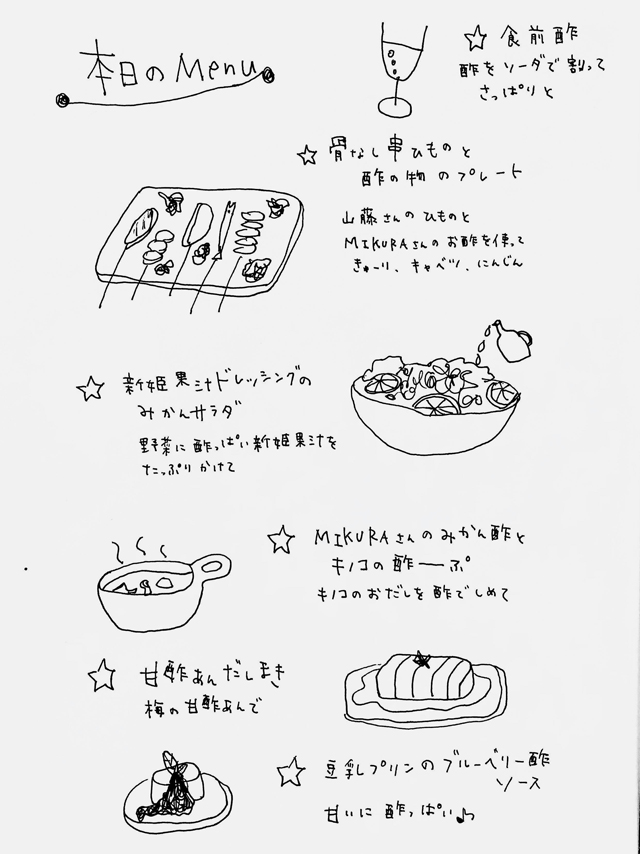 本日のMenu
☆ 食前酢
酢をソーダで割って
さっぱりと
☆ 骨なし串ひものと
酢の物のプレート
山藤さんのひものと
MIKURAさんのお酢を使って
きゅーり、キャベツ、にんじん
☆ 新姫果汁ドレッシングの
みかんサラダ
野菜に酢っぱい新姫果汁を
たっぷりかけて
☆ MIKURAさんのみかん酢と
キノコの酢ーぷ
キノコのおだしを酢でしめて
☆ 甘酢あんだしまき
梅の甘酢あんで
☆ 豆乳プリンのブルーベリー酢
ソース
甘いに酢っぱい♪